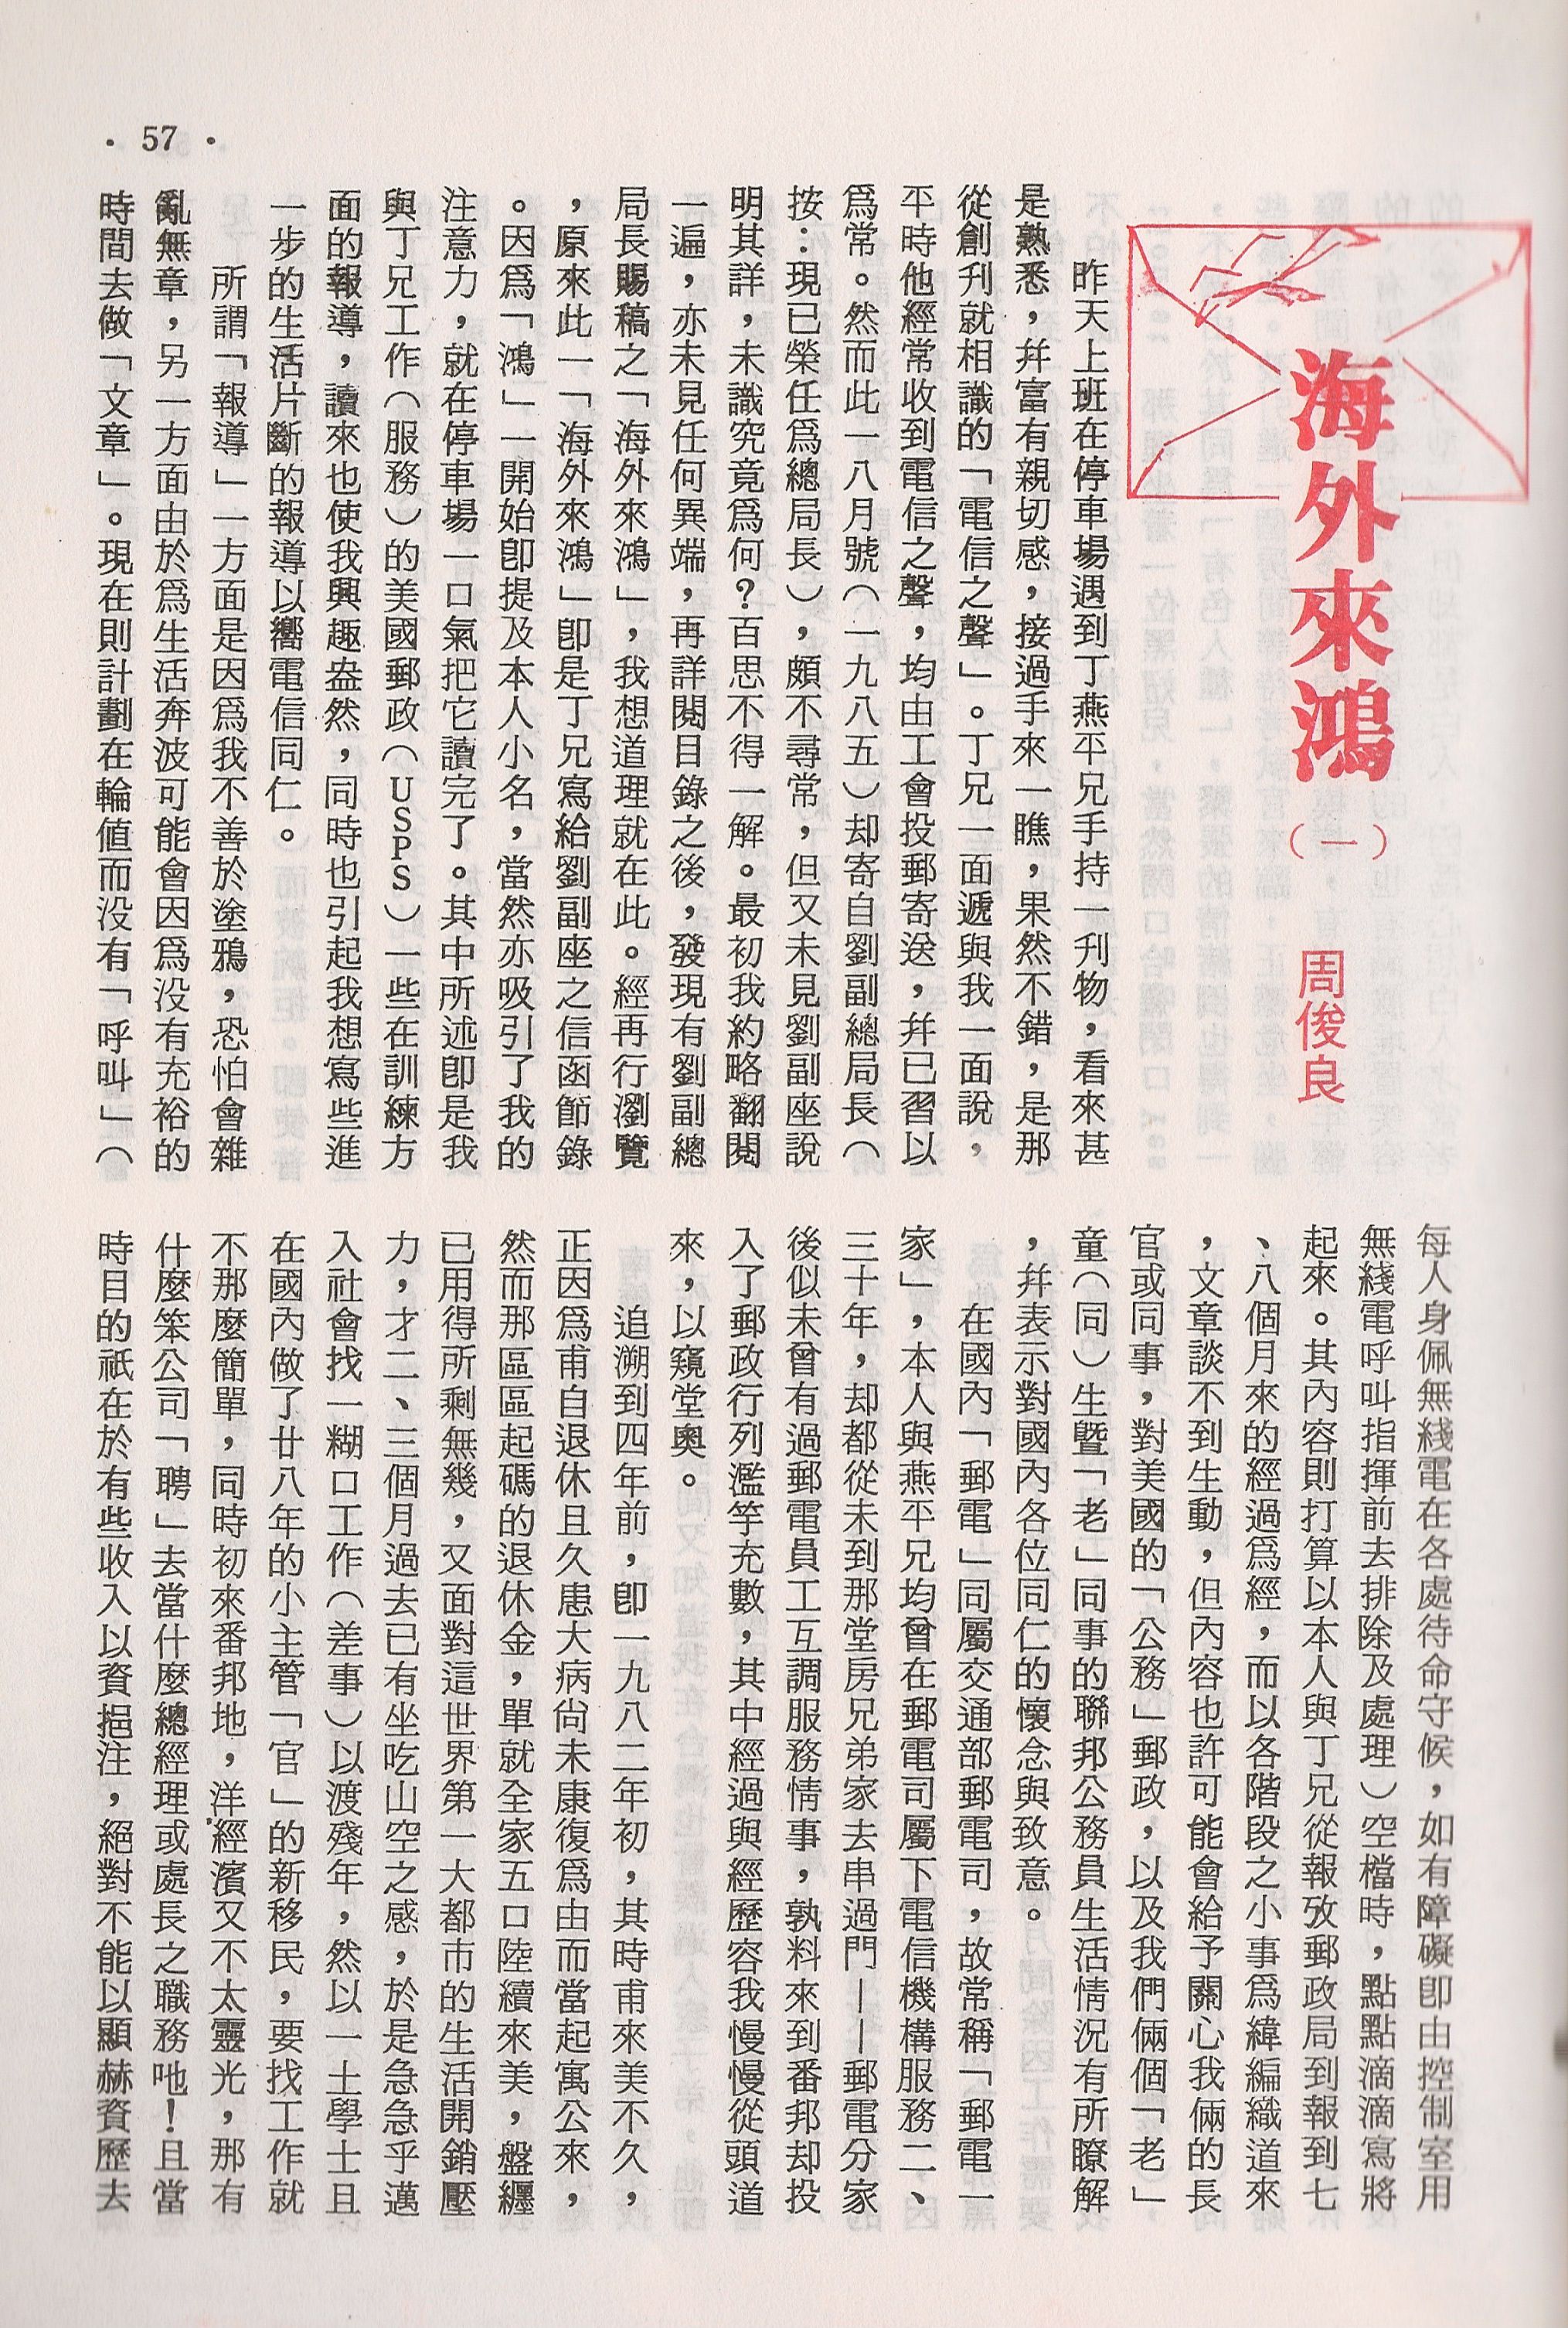 海外來鴻
（一）
周俊良
昨天上班在停車場遇到丁燕平兄手持一刊物，看來甚
是熟悉，幷富有親切感，接過手來一瞧，果然不錯，是那
從創刊就相識的「電信之聲」。丁兄一面遞與我一面說，
平時他經常收到電信之聲，均由工會投郵寄送，幷已習以
爲常。然而此一八月號（一九八五）却寄自劉副總局長（
按：現已榮任爲總局長），頗不尋常，但又未見劉副座說
明其詳，未識究竟爲何？百思不得一解。最初我約略翻閱
一遍，亦未見任何異端，再詳閱目錄之後，發現有劉副總
局長賜稿之「海外來鴻」，我想道理就在此。經再行瀏覽
，原來此一「海外來鴻」卽是丁兄寫給劉副座之信函節錄
。因爲「鴻」一開始卽提及本人小名，當然亦吸引了我的
注意力，就在停車場一口氣把它讀完了。其中所述卽是我
與丁兄工作（服務）的美國郵政（USPS）一些在訓練方
面的報導，讀來也使我興趣盎然，同時也引起我想寫些進
一步的生活片斷的報導以嚮電信同仁。
所謂「報導」一方面是因爲我不善於塗鴉，恐怕會雜
亂無章，另一方面由於爲生活奔波可能會因爲没有充裕的
時間去做「文章」。現在則計劃在輪値而没有「呼叫」（
每人身佩無綫電在各處待命守候，如有障礙卽由控制室用
無綫電呼叫指揮前去排除及處理）空檔時，點點滴滴寫將
起來。其內容則打算以本人與丁兄從報攷郵政局到報到七
、八個月來的經過爲經，而以各階段之小事爲緯編織道來
，文章談不到生動，但內容也許可能會給予關心我倆的長
官或同事，對美國的「公務」郵政，以及我們倆個「老」
童（同）生曁「老」同事的聯邦公務員生活情況有所瞭解
，幷表示對國內各位同仁的懷念與致意。
在國內「郵電」同屬交通部郵電司，故常稱「郵電一
家」，本人與燕平兄均曾在郵電司屬下電信機構服務二、
三十年，却都從未到那堂房兄弟家去串過門——郵電分家
後似未曾有過郵電員工互調服務情事，孰料來到番邦却投
入了郵政行列濫竽充數，其中經過與經歷容我慢慢從頭道
來，以窺堂奧。
追溯到四年前，卽一九八二年初，其時甫來美不久，
正因爲甫自退休且久患大病尙未康復爲由而當起寓公來，
然而那區區起碼的退休金，單就全家五口陸續來美，盤纏
已用得所剩無幾，又面對這世界第一大都市的生活開銷壓
力，才二、三個月過去已有坐吃山空之感，於是急急乎邁
入社會找一糊口工作（差事）以渡殘年，然以一土學士且
在國內做了廿八年的小主管「官」的新移民，要找工作就
不那麼簡單，同時初來番邦地，洋經濱又不太靈光，那有
什麼笨公司「聘」去當什麼總經理或處長之職務吔！且當
時目的祇在於有些收入以資挹注，絕對不能以顯赫資歷去
· 57 ·